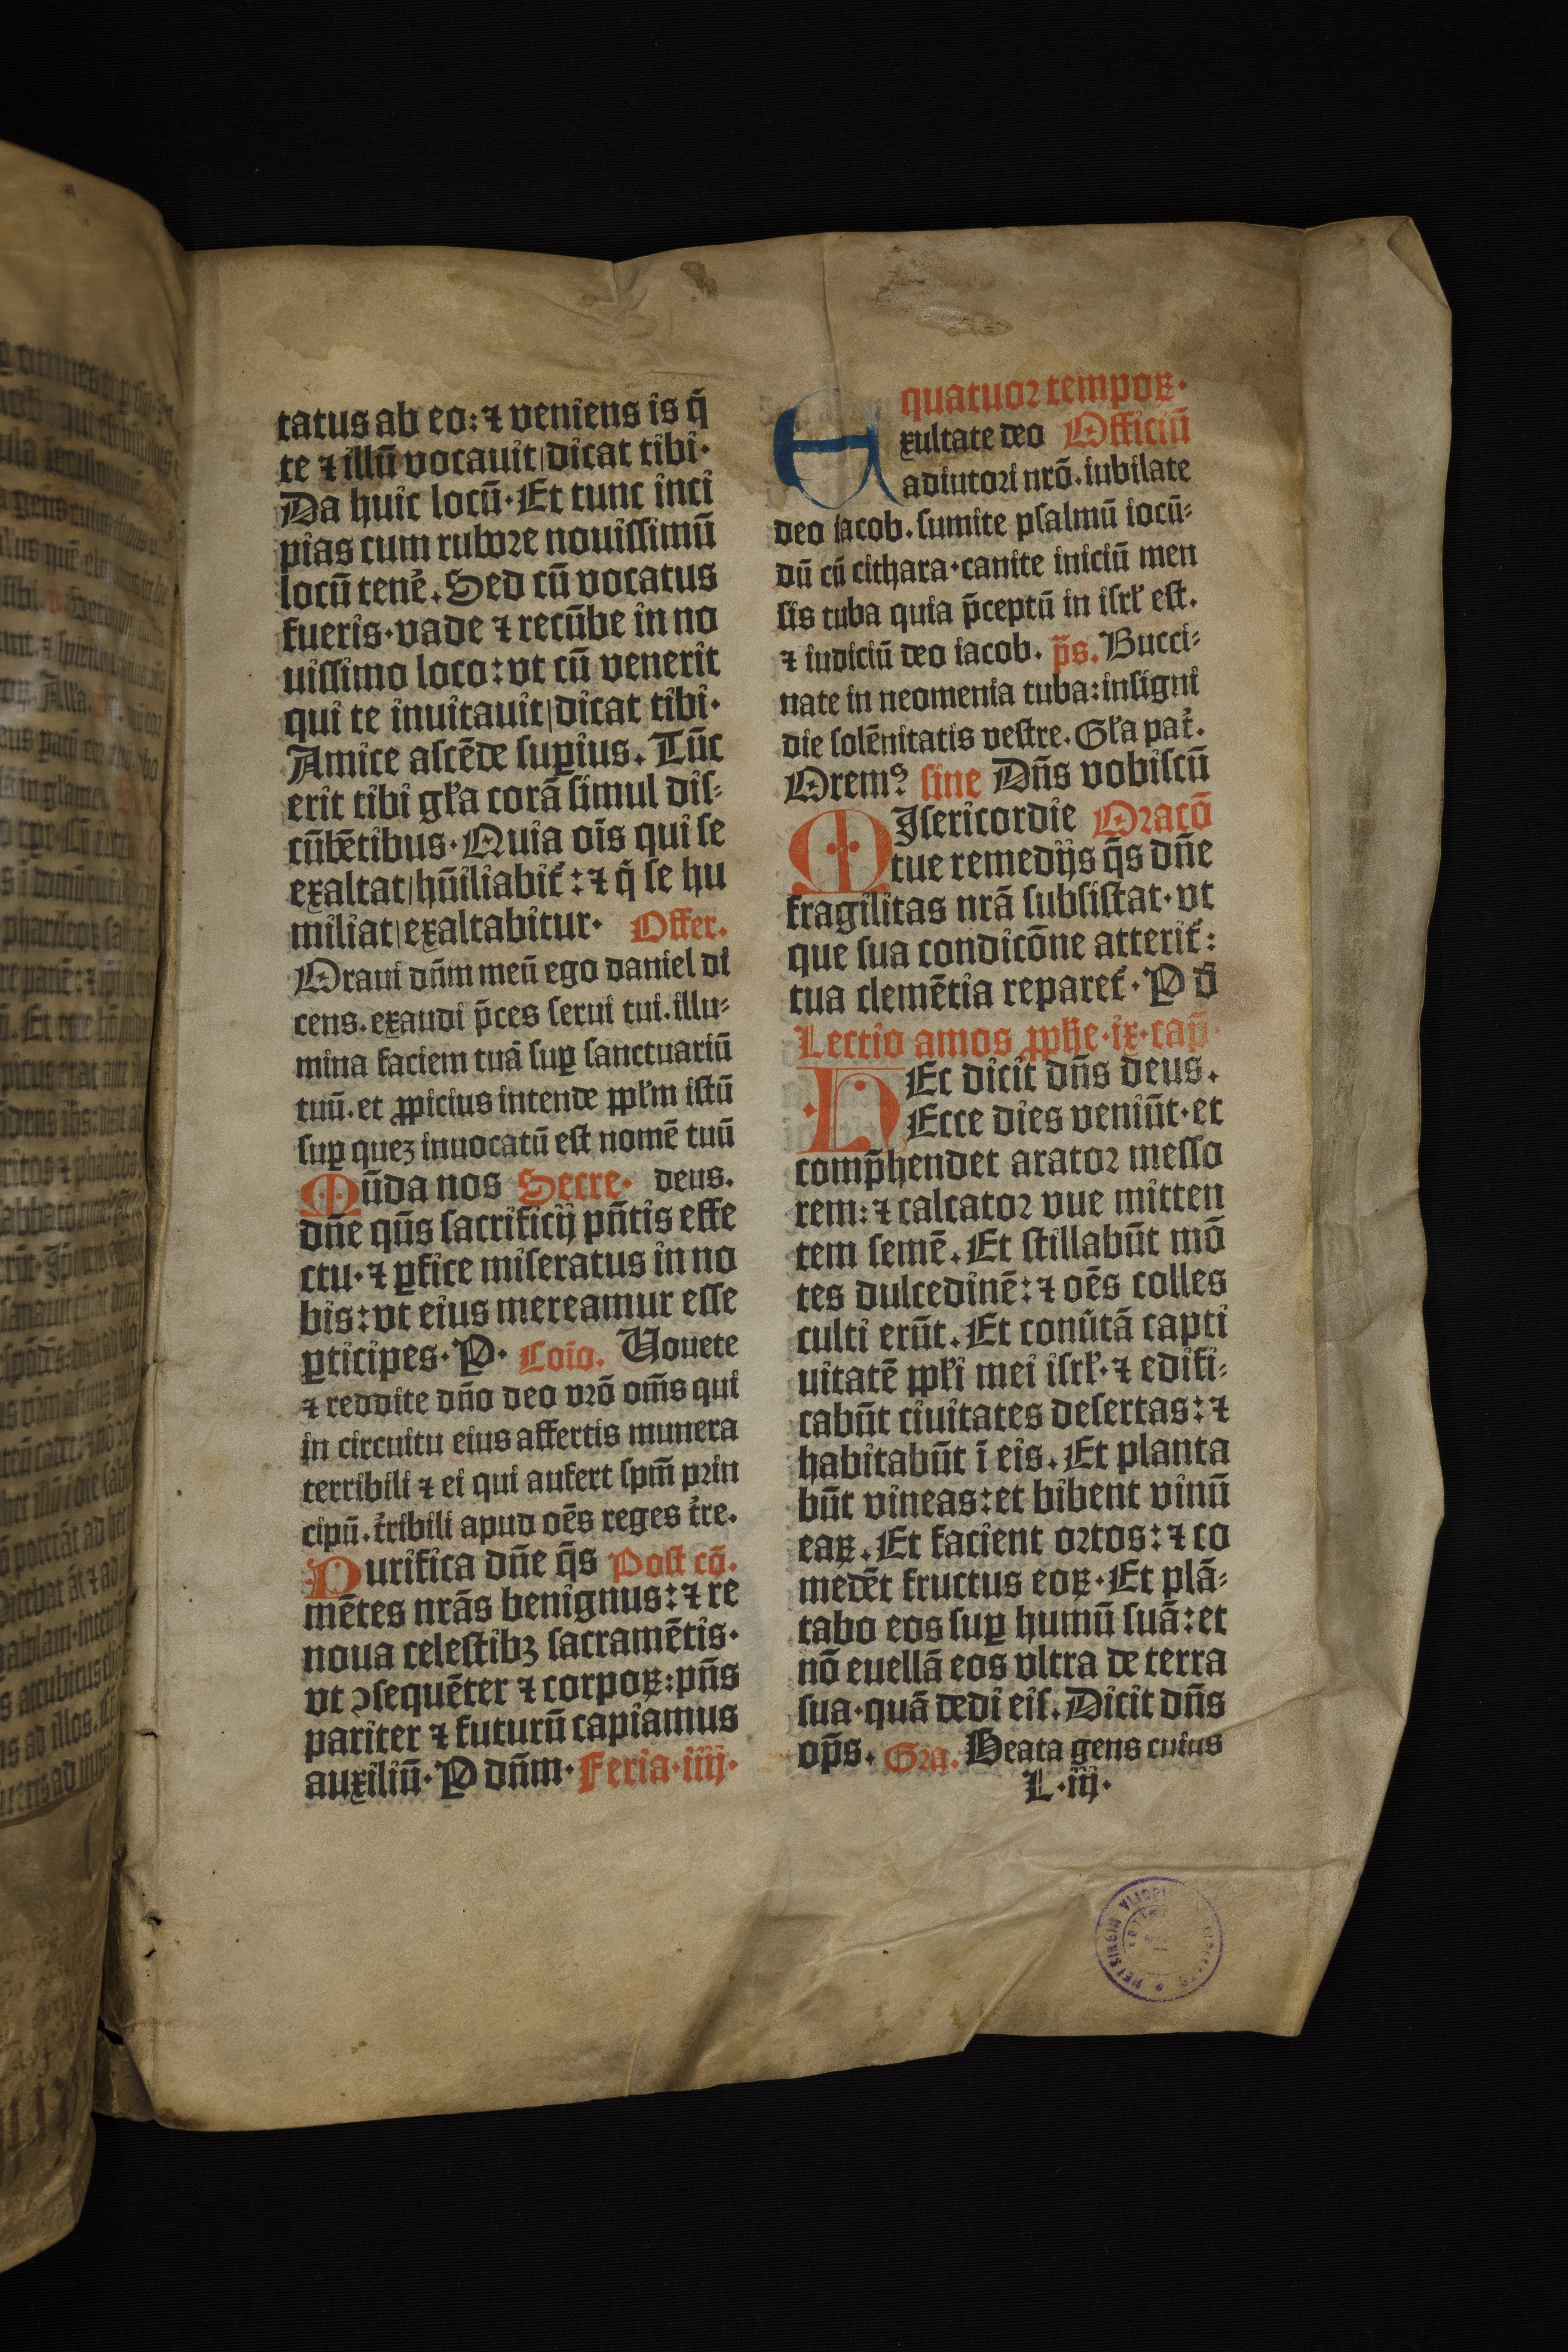 tatus ab eo: ⁊ veniens is q̄
te ⁊ illū vocauit|dicat tibi·
Da huic locū·Et tunc inci
pias cum rubore nouissimū
locū tenē. Sed cū vocatus
fueris·vade ⁊ recūbe in no
uissimo loco: vt cū venerit
qui te inuitauit|dicat tibi·
Amice ascēde suꝑius. Tūc
erit tibi gl'a corā simul dis⸗
cūbētibus·Quia oīs qui se
exaltat|hūiliabit̄: ⁊ q̄ se hu
miliat|exaltabitur· Offer.
Oraui dn̄m meū ego daniel di
cens. exaudi p̄ces serui tui. illu⸗
mina faciem tuā suꝑ sanctuariū
tuū. et ꝓpicius intende ppl'm istū
suꝑ quez inuocatū est nomē tuū
Mūda nos Secre· deus.
dn̄e qūs sacrificij pn̄tis effe
ctu· ⁊ ꝑfice miseratus in no
bis: vt eius mereamur esse
ꝑticipes· P· Coīo. Vouete
⁊ reddite dn̄o deo vrō om̄s qui
in circuitu eius affertis munera
terribili ⁊ ei qui aufert spm̄ prin
cipū. t̄ribili apud oēs reges t̄re.
Purifica dn̄e q̄s Post cō.
mētes nrās benignus: ⁊ re
noua celestibꝫ sacramētis·
vt ↄsequēter ⁊ corpoꝝ: pn̄s
pariter ⁊ futurū capiamus
auxiliū· P dn̄m· Feria·iiij·
quatuor tempoꝝ·
Exultate deo Officiū
adiutori nrō. iubilate
deo iacob. sumite psalmū iocū⸗
dū cū cithara·canite iniciū men
sis tuba quia p̄ceptū in isrl' est.
⁊ iudiciū deo iacob. p̄s. Bucci⸗
nate in neomenia tuba: insigni
die solēnitatis vestre. Gl'a pat̄.
Oremꝰ sine Dn̄s vobiscū
MIsericordie Oracō
tue remedijs q̄s dn̄e
fragilitas nrā subsistat·vt
que sua condicōne atterit̄:
tua clemētia reparet̄· P d̄
Lectio amos ꝓphe·ix·cap̄·
HEc dicit dn̄s deus.
Ecce dies veniūt·et
comp̄hendet arator messo
rem: ⁊ calcator vue mitten
tem semē. Et stillabūt mō
tes dulcedinē: ⁊ oēs colles
culti erūt. Et conūtā capti
uitatē ppl'i mei isrl'· ⁊ edifi⸗
cabūt ciuitates desertas: ⁊
habitabūt ī eis. Et planta
būt vineas: et bibent vinū
eaꝝ. Et facient ortos: ⁊ co
medēt fructus eoꝝ·Et plā⸗
tabo eos suꝑ humū suā: et
nō euellā eos vltra de terra
sua·quā dedi eis. Dicit dn̄s
op̄s. Gra. Beata gens cuius
L·iij·